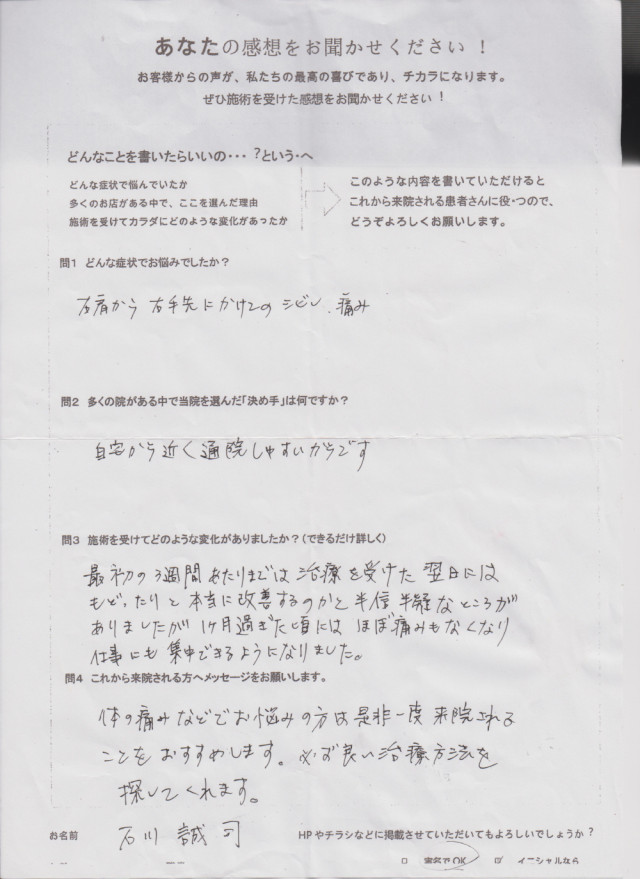 あなたの感想をお聞かせください！
お客様からの声が、私たちの最高の喜びであり、チカラになります。
ぜひ施術を受けた感想をお聞かせください！
どんなことを書いたらいいの・・・？という・へ
どんな症状で悩んでいたか
多くのお店がある中で、ここを選んだ理由
施術を受けてカラダにどのような変化があったか
このような内容を書いていただけると
これから来院される患者さんに役・つので、
どうぞよろしくお願いします。
問1 どんな症状でお悩みでしたか？
右肩から右手先にかけてのシビレ、痛み
問2 多くの院がある中で当院を選んだ「決め手」は何ですか？
自宅から近く通院しやすいからです
問3 施術を受けてどのような変化がありましたか？（できるだけ詳しく）
最初の3週間あたりまでは治療を受けた翌日には
もどったりと本当に改善するのかと半信半疑なところが
ありましたが1ヶ月過ぎた頃にはほぼ痛みもなくなり
仕事にも集中できるようになりました。
問4 これから来院される方へメッセージをお願いします。
体の痛みなどでお悩みの方は是非一度来院される
ことをおすすめします。必ず良い治療方法を
探してくれます。
お名前 石川誠司
HPやチラシなどに掲載させていただいてもよろしいでしょうか？
実名でOK イニシャルなら